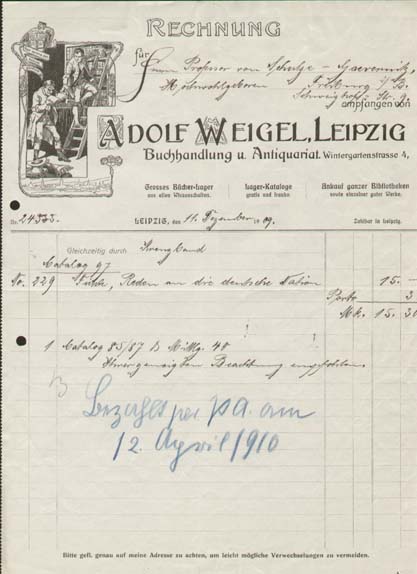 RECHNUNG
für Herrn Professor von Schulze-Gaevernitz
Hochwohlgeboren Freiburg i/B.
empfangen von
ADOLF WEIGEL, LEIPZIG
Buchhandlung u. Antiquariat. Wintergartenstrasse 4.
Grosses Bücher-Lager
aus allen Wissenschaften.
Lager-Kataloge
gratis und franko.
Ankauf ganzer Bibliotheken
sowie einzelner guter Werke.
Nr. 24333. LEIPZIG, den 11. Dezember 1909. Zahlbar in Leipzig.
Gleichzeitig durch Kreuzband
Catalog 97
No. 229 Fichte, Reden an die deutsche Nation 15.–
Porto 3
Mk. 15.30
1 Catalog 85/87 & Mittlg. 40
Ihrer geneigten Beachtung empfohlen.
Bezahlt per PA. am
12. April 1910
Bitte gefl. genau auf meine Adresse zu achten, um leicht mögliche Verwechselungen zu vermeiden.